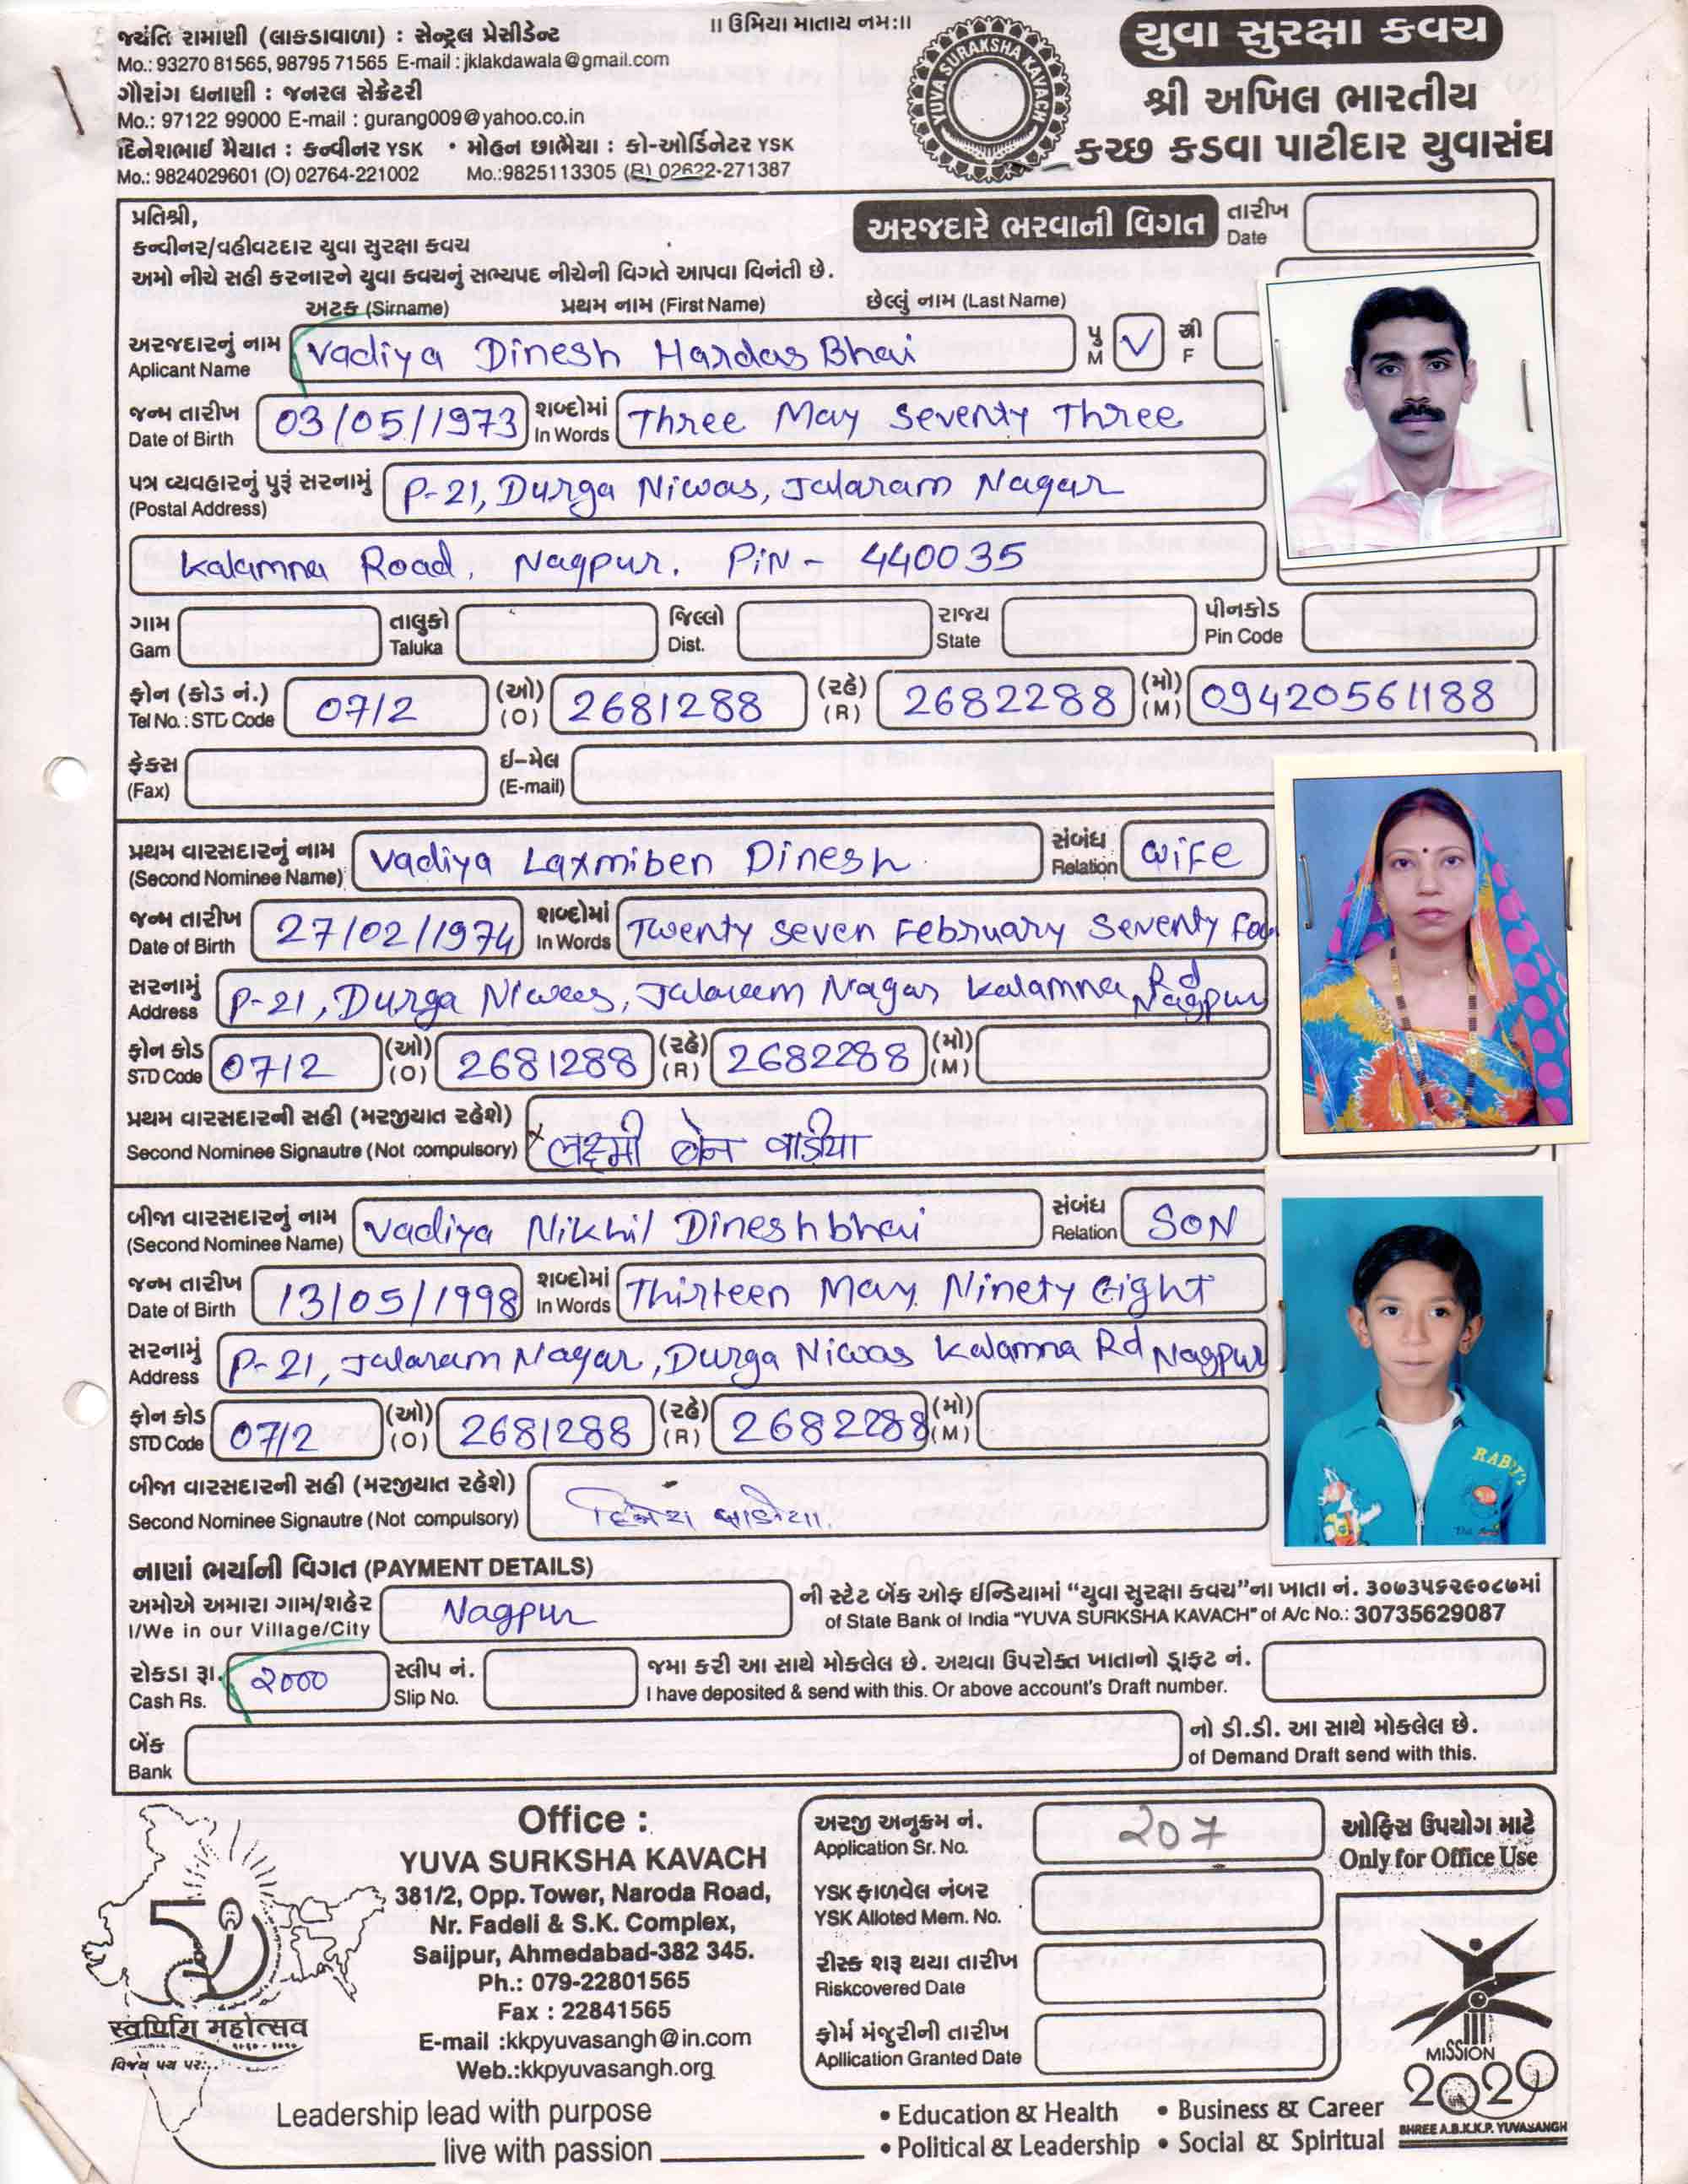 ॥ ઉમિયા માતાય નમ:॥
જયંતિ રામાણી (લાકડાવાળા) : સેન્ટ્રલ પ્રેસીડેન્ટ
Mo.: 93270 81565, 98795 71565 E-mail : jklakdawala@gmail.com
ગૌરાંગ ધનાણી : જનરલ સેક્રેટરી
Mo.: 97122 99000 E-mail : gurang009@yahoo.co.in
દિનેશભાઈ મૈયાત : કન્વીનર YSK • મોહન છાભૈયા : કો-ઓર્ડિનેટર YSK
Mo.: 9824029601 (O) 02764-221002 Mo.:9825113305 (R) 02622-271387
YUVA SURAKSHA KAVACH
યુવા સુરક્ષા કવચ
શ્રી અખિલ ભારતીય
કચ્છ કડવા પાટીદાર યુવાસંઘ
પ્રતિશ્રી,
કન્વીનર/વહીવટદાર યુવા સુરક્ષા કવચ
અમો નીચે સહી કરનારને યુવા કવચનું સભ્યપદ નીચેની વિગતે આપવા વિનંતી છે.
અરજદારે ભરવાની વિગત તારીખ Date
અટક (Sirname) પ્રથમ નામ (First Name) છેલ્લું નામ (Last Name)
અરજદારનું નામ Aplicant Name Vadiya Dinesh HardasBhai પુ M V સ્ત્રી F
જન્મ તારીખ Date of Birth 03/05/1973 શબ્દોમાં In Words Three May Seventy Three
પત્ર વ્યવહારનું પુરૂં સરનામું (Postal Address) P-21, Durga Niwas, Jalaram Nagar
Kalamna Road, Nagpur. PiN - 440035
ગામ Gam તાલુકો Taluka જિલ્લો Dist. રાજ્ય State પીનકોડ Pin Code
ફોન (કોડ નં.) Tel No. : STD Code 0712 (ઓ) (O) 2681288 (રહે) (R) 2682288 (મો) (M) 09420561188
ફેકસ (Fax) ઈ-મેલ (E-mail)
પ્રથમ વારસદારનું નામ (Second Nominee Name) Vadiya Laxmiben Dinesh સંબંધ Relation WiFe
જન્મ તારીખ Date of Birth 27/02/1974 શબ્દોમાં In Words Twenty Seven February Seventy Fou
સરનામું Address P-21, Durga Niwas, Jalaram Nagar Kalamna Rd Nagpur
ફોન કોડ STD Code 0712 (ઓ) (O) 2681288 (રહે) (R) 2682288 (મો) (M)
પ્રથમ વારસદારની સહી (મરજીયાત રહેશે)
Second Nominee Signautre (Not compulsory) x लक्ष्मी बेन वाडीया
બીજા વારસદારનું નામ (Second Nominee Name) Vadiya Nikhil Dineshbhai સંબંધ Relation SON
જન્મ તારીખ Date of Birth 13/05/1998 શબ્દોમાં In Words Thirteen May Ninety Eight
સરનામું Address P-21, Jalaram Nagar, Durga Niwas Kalamna Rd Nagpur
ફોન કોડ STD Code 0712 (ઓ) (O) 2681288 (રહે) (R) 2682288 (મો) (M)
બીજા વારસદારની સહી (મરજીયાત રહેશે)
Second Nominee Signautre (Not compulsory)
નાણાં ભર્યાની વિગત (PAYMENT DETAILS)
અમોએ અમારા ગામ/શહેર I/We in our Village/City Nagpur ની સ્ટેટ બેંક ઓફ ઈન્ડિયામાં "યુવા સુરક્ષા કવચ"ના ખાતા નં. ૩૦૭૩૫૬૨૯૦૮૭માં
of State Bank of India "YUVA SURKSHA KAVACH" of A/c No.: 30735629087
રોકડા રૂા. Cash Rs. 2000 સ્લીપ નં. Slip No. જમા કરી આ સાથે મોકલેલ છે. અથવા ઉપરોક્ત ખાતાનો ડ્રાફ્ટ નં.
I have deposited & send with this. Or above account's Draft number.
બેંક Bank નો ડી.ડી. આ સાથે મોકલેલ છે.
of Demand Draft send with this.
Office :
YUVA SURKSHA KAVACH
381/2, Opp. Tower, Naroda Road,
Nr. Fadeli & S.K. Complex,
Saijpur, Ahmedabad-382 345.
Ph.: 079-22801565
Fax : 22841565
E-mail :kkpyuvasangh@in.com
Web.:kkpyuvasangh.org
અરજી અનુક્રમ નં. Application Sr. No. 207
ઓફિસ ઉપયોગ માટે
Only for Office Use
YSK ફાળવેલ નંબર YSK Alloted Mem. No.
રીસ્ક શરૂ થયા તારીખ Riskcovered Date
ફોર્મ મંજુરીની તારીખ Apllication Granted Date
50
સ્વર્ણિમ મહોત્સવ
વિજય પથ પર...
MISSION
2020
SHREE A.B.K.K.P. YUVASANGH
Leadership lead with purpose
live with passion
• Education & Health • Business & Career
• Political & Leadership • Social & Spiritual